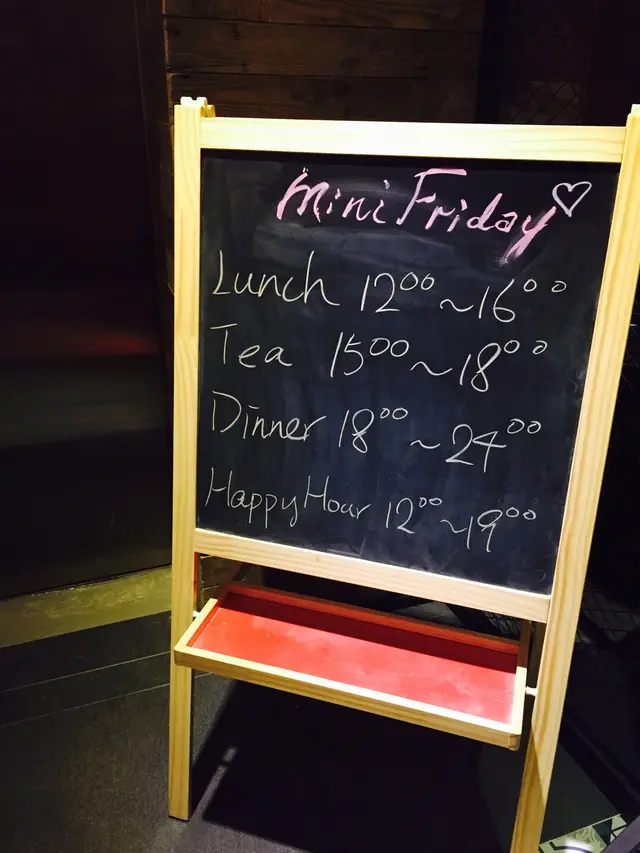 Mini Friday♡
Lunch 12⁰⁰~16⁰⁰
Tea 15⁰⁰~18⁰⁰
Dinner 18⁰⁰~24⁰⁰
Happy Hour 12⁰⁰~19⁰⁰